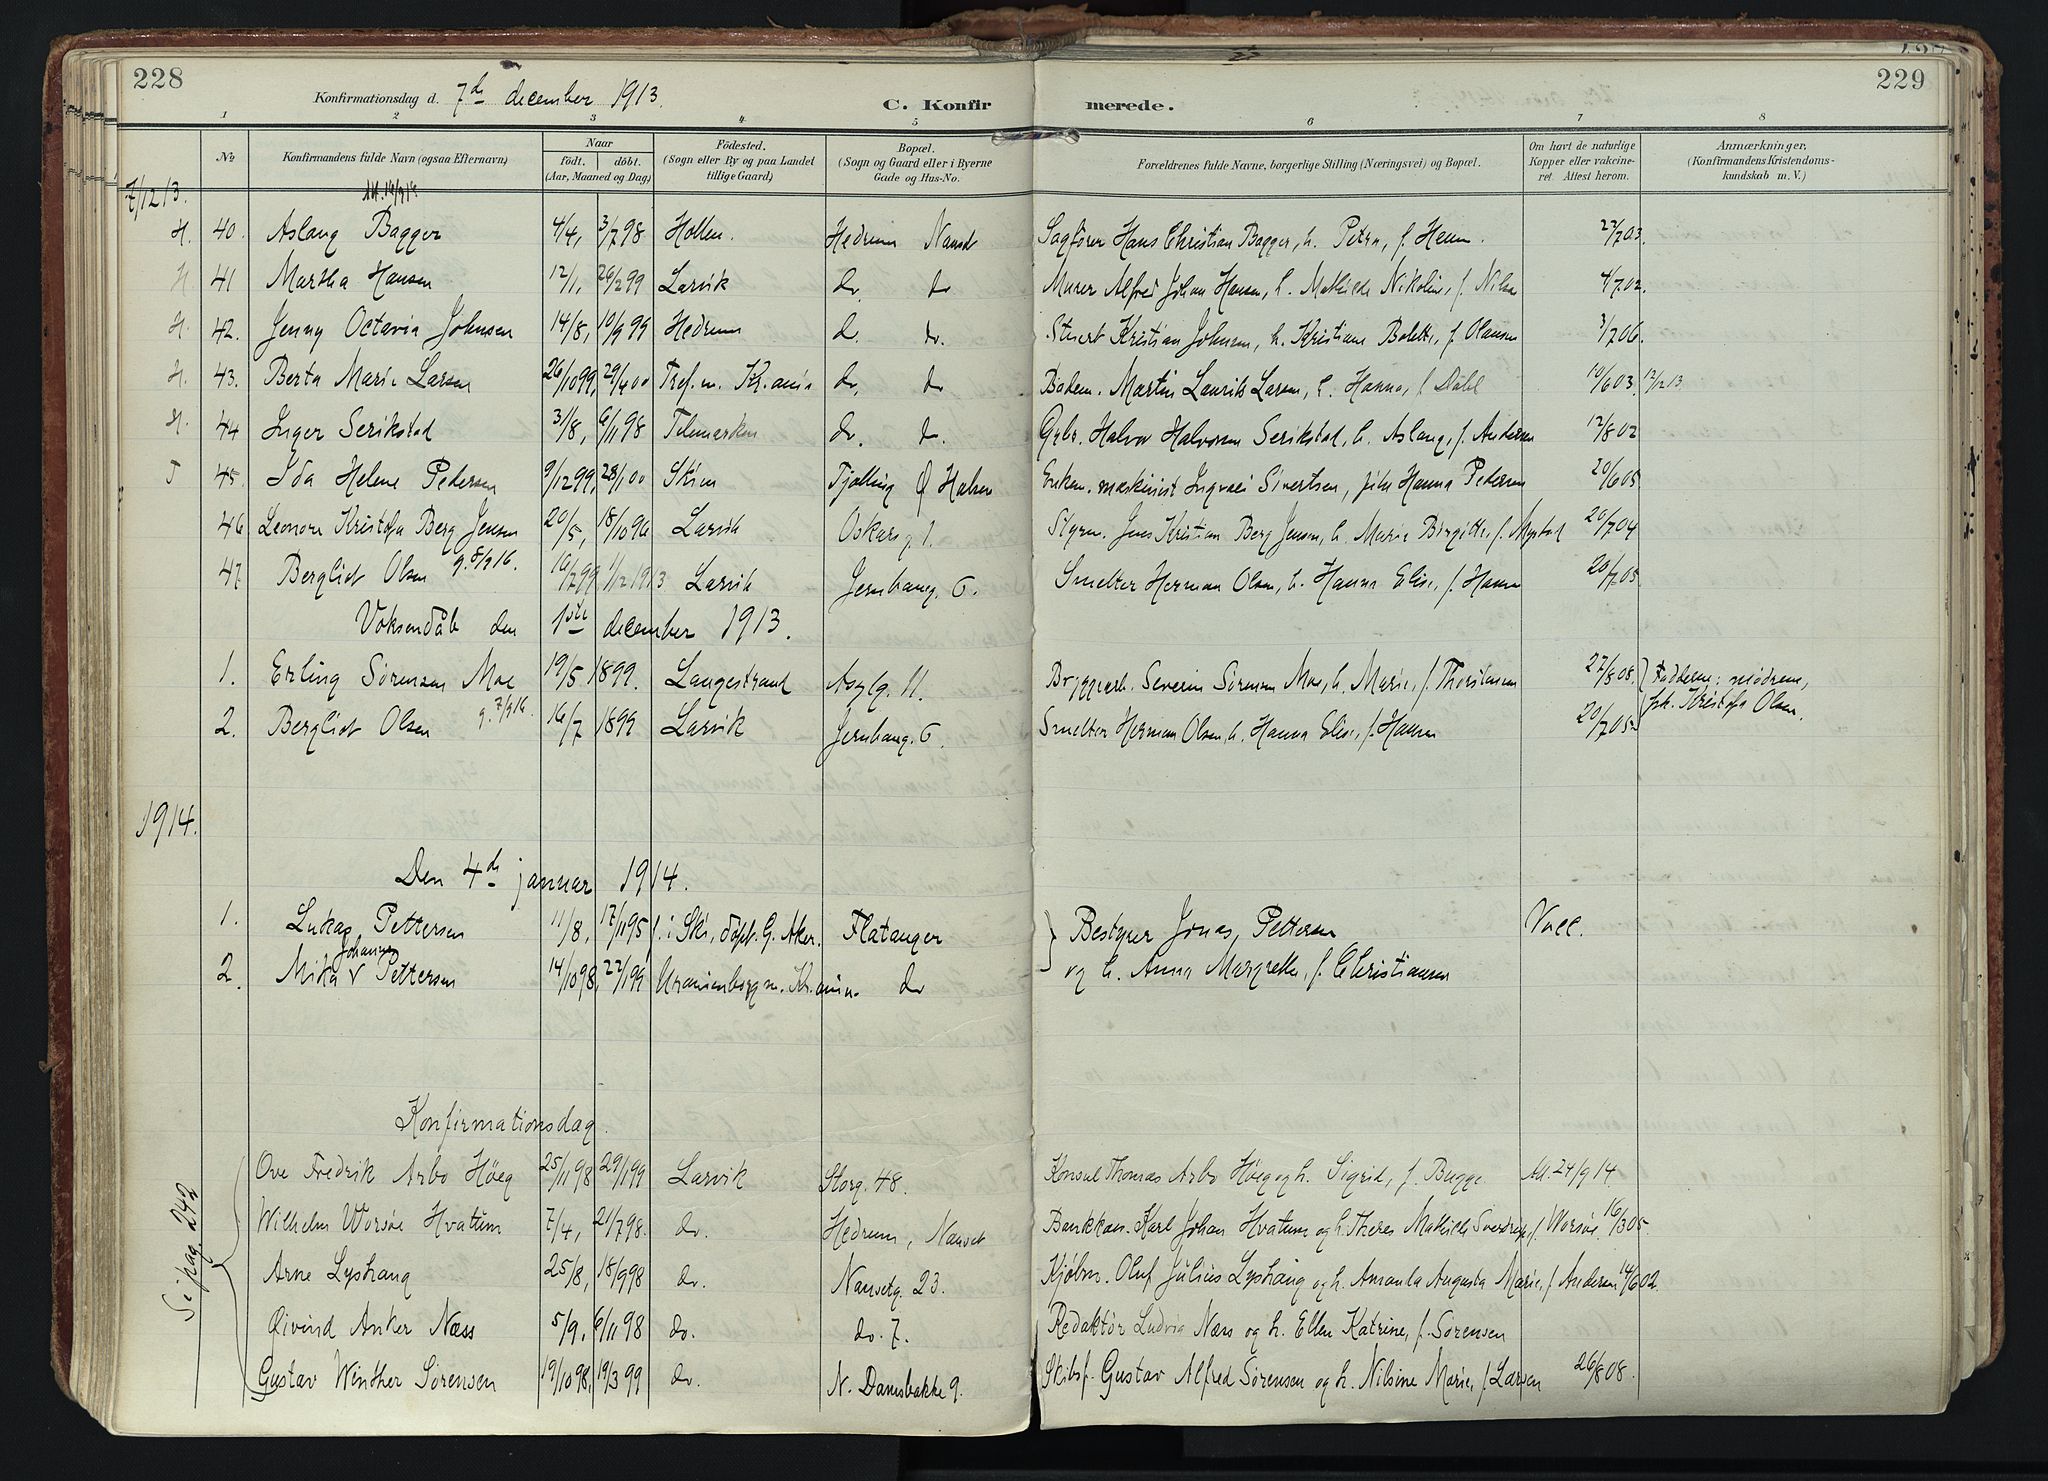 228
Konfirmationsdag d. 7de december 1913.
C. Konfirmerede.
229
1 2 3 4 5 6 7 8
No
Konfirmandens fulde Navn (ogsaa Efternavn)
Naar
födt. döbt.
(Aar, Maaned og Dag)
Födested.
(Sogn eller By og paa Landet
tillige Gaard)
Bopæl.
(Sogn og Gaard eller i Byerne
Gade og Hus-No.
Forældrenes fulde Navne, borgerlige Stilling (Næringsvei) og Bopæl.
Om havt de naturlige
Kopper eller vakcine-
ret. Attest herom.
Anmærkninger.
(Konfirmandens Kristendoms-
kundskab m. V.)
7/12 13.
H. 40. Aslaug Bagger 4/4, 3/7 98 Hollen. Hedrum Nanset Sagfører Hans Christian Bagger, h. Petra, f. Heum. 22/7 03.
H 41 Martha Hansen 12/1, 26/2 99 Larvik do. do Murer Alfred Johan Hansen, h. Mathilde Nikoline, f. Nilsen 4/7 02.
H. 42. Jenny Octavia Johnsen 14/8, 10/9 99 Hedrum do. do. Kristian Johnsen, h. Kristiane Bolette, f. Olausen 3/7 06.
H. 43. Berta Marie Larsen 26/10 99, 29/4 00 Tref. m. Kr.ania do. do Martin Laurits Larsen, h. Hanna, f. Dahl 10/6 03. 12/2 13
H. 44 Inger Serikstad 31/8, 6/11 98 Telemarken do. do. Gbr. Halvor Halvorsen Serikstad, h. Aslaug, f. Andersen 12/8 02
T 45. Ida Helene Pedersen 9/12 99, 28/1 00 Skien Tjølling Ø Halsen Enkem. maskinist Ingvald Sivertsen, pike Hanna Pedersen 20/6 05
46 Leonore Kristofa Berg Jensen 20/5, 18/10 96 Larvik Oskarsg 1. Styrm. Jens Kristian Berg Jensen, h. Marie Birgitte, f. Mystad 20/7 04
47. Bergliot Olsen g. 8/9 16. 16/7 99, 1/12 1913 Larvik Jernbaneg. 6. Smelter Herman Olsen, h. Hanna Elise, f. Hansen 20/7 05.
Voksendåb den 1ste december 1913.
1. Erling Sørensen Moe 19/5 1899. Langestrand Asylg. 11. Bryggearb. Severin Sørensen Moe, h. Marie, f. Thorstensen 27/8 08. } Fadderne: mødrene,
2. Bergliot Olsen g. 7/9 16. 16/7 1899 Larvik Jernbaneg. 6. Smelter Herman Olsen, h. Hanna Elise, f. Hansen 20/7 05 Kristofa Olsen.
1914.
Den 4de januar 1914.
1. Lukas Pettersen 11/8, 17/11 95 f. i Ski, døpt G. Aker. Flatanger } Bestyrer Jonas Pettersen Vacc.
2. Mika Johanne Pettersen 14/10 98, 22/1 99 Uranienborg m. Kr.ania. do og h. Anna Margrethe, f. Christiansen
Konfirmationsdag
Se pag. 242
Ove Fredrik Arbo Höeg 25/11 98 29/1 99 Larvik Storg. 48. Konsul Thomas Arbo Höeg og h. Sigrid, f. Bugge. Att. 24/9 14
Wilhelm Worsöe Hvatum 7/4, 21/7 98. do. Hedrum, Nanset Bankkas. Karl Johan Hvatum og h. Theres Mathilde Sverdrup, f. Worsöe 16/3 05.
Arne Lyshaug 25/8, 18/9 98 do. Nansetg. 23. Kjøbm. Oluf Julius Lyshaug og h. Amanla Augusta Marie, f. Andersen 14/6 02.
Øivind Anker Næss 5/9, 6/11 98 do. do. 7. Redaktör Ludvig Næss og h. Ellen Katrine, f. Sörensen
Gustav Winther Sörensen 19/10 98, 19/3 99 do. N. Damsbakke 9. Skibsf. Gustav Alfred Sörensen og h. Nilsine Marie, f. Larsen 26/8 08.